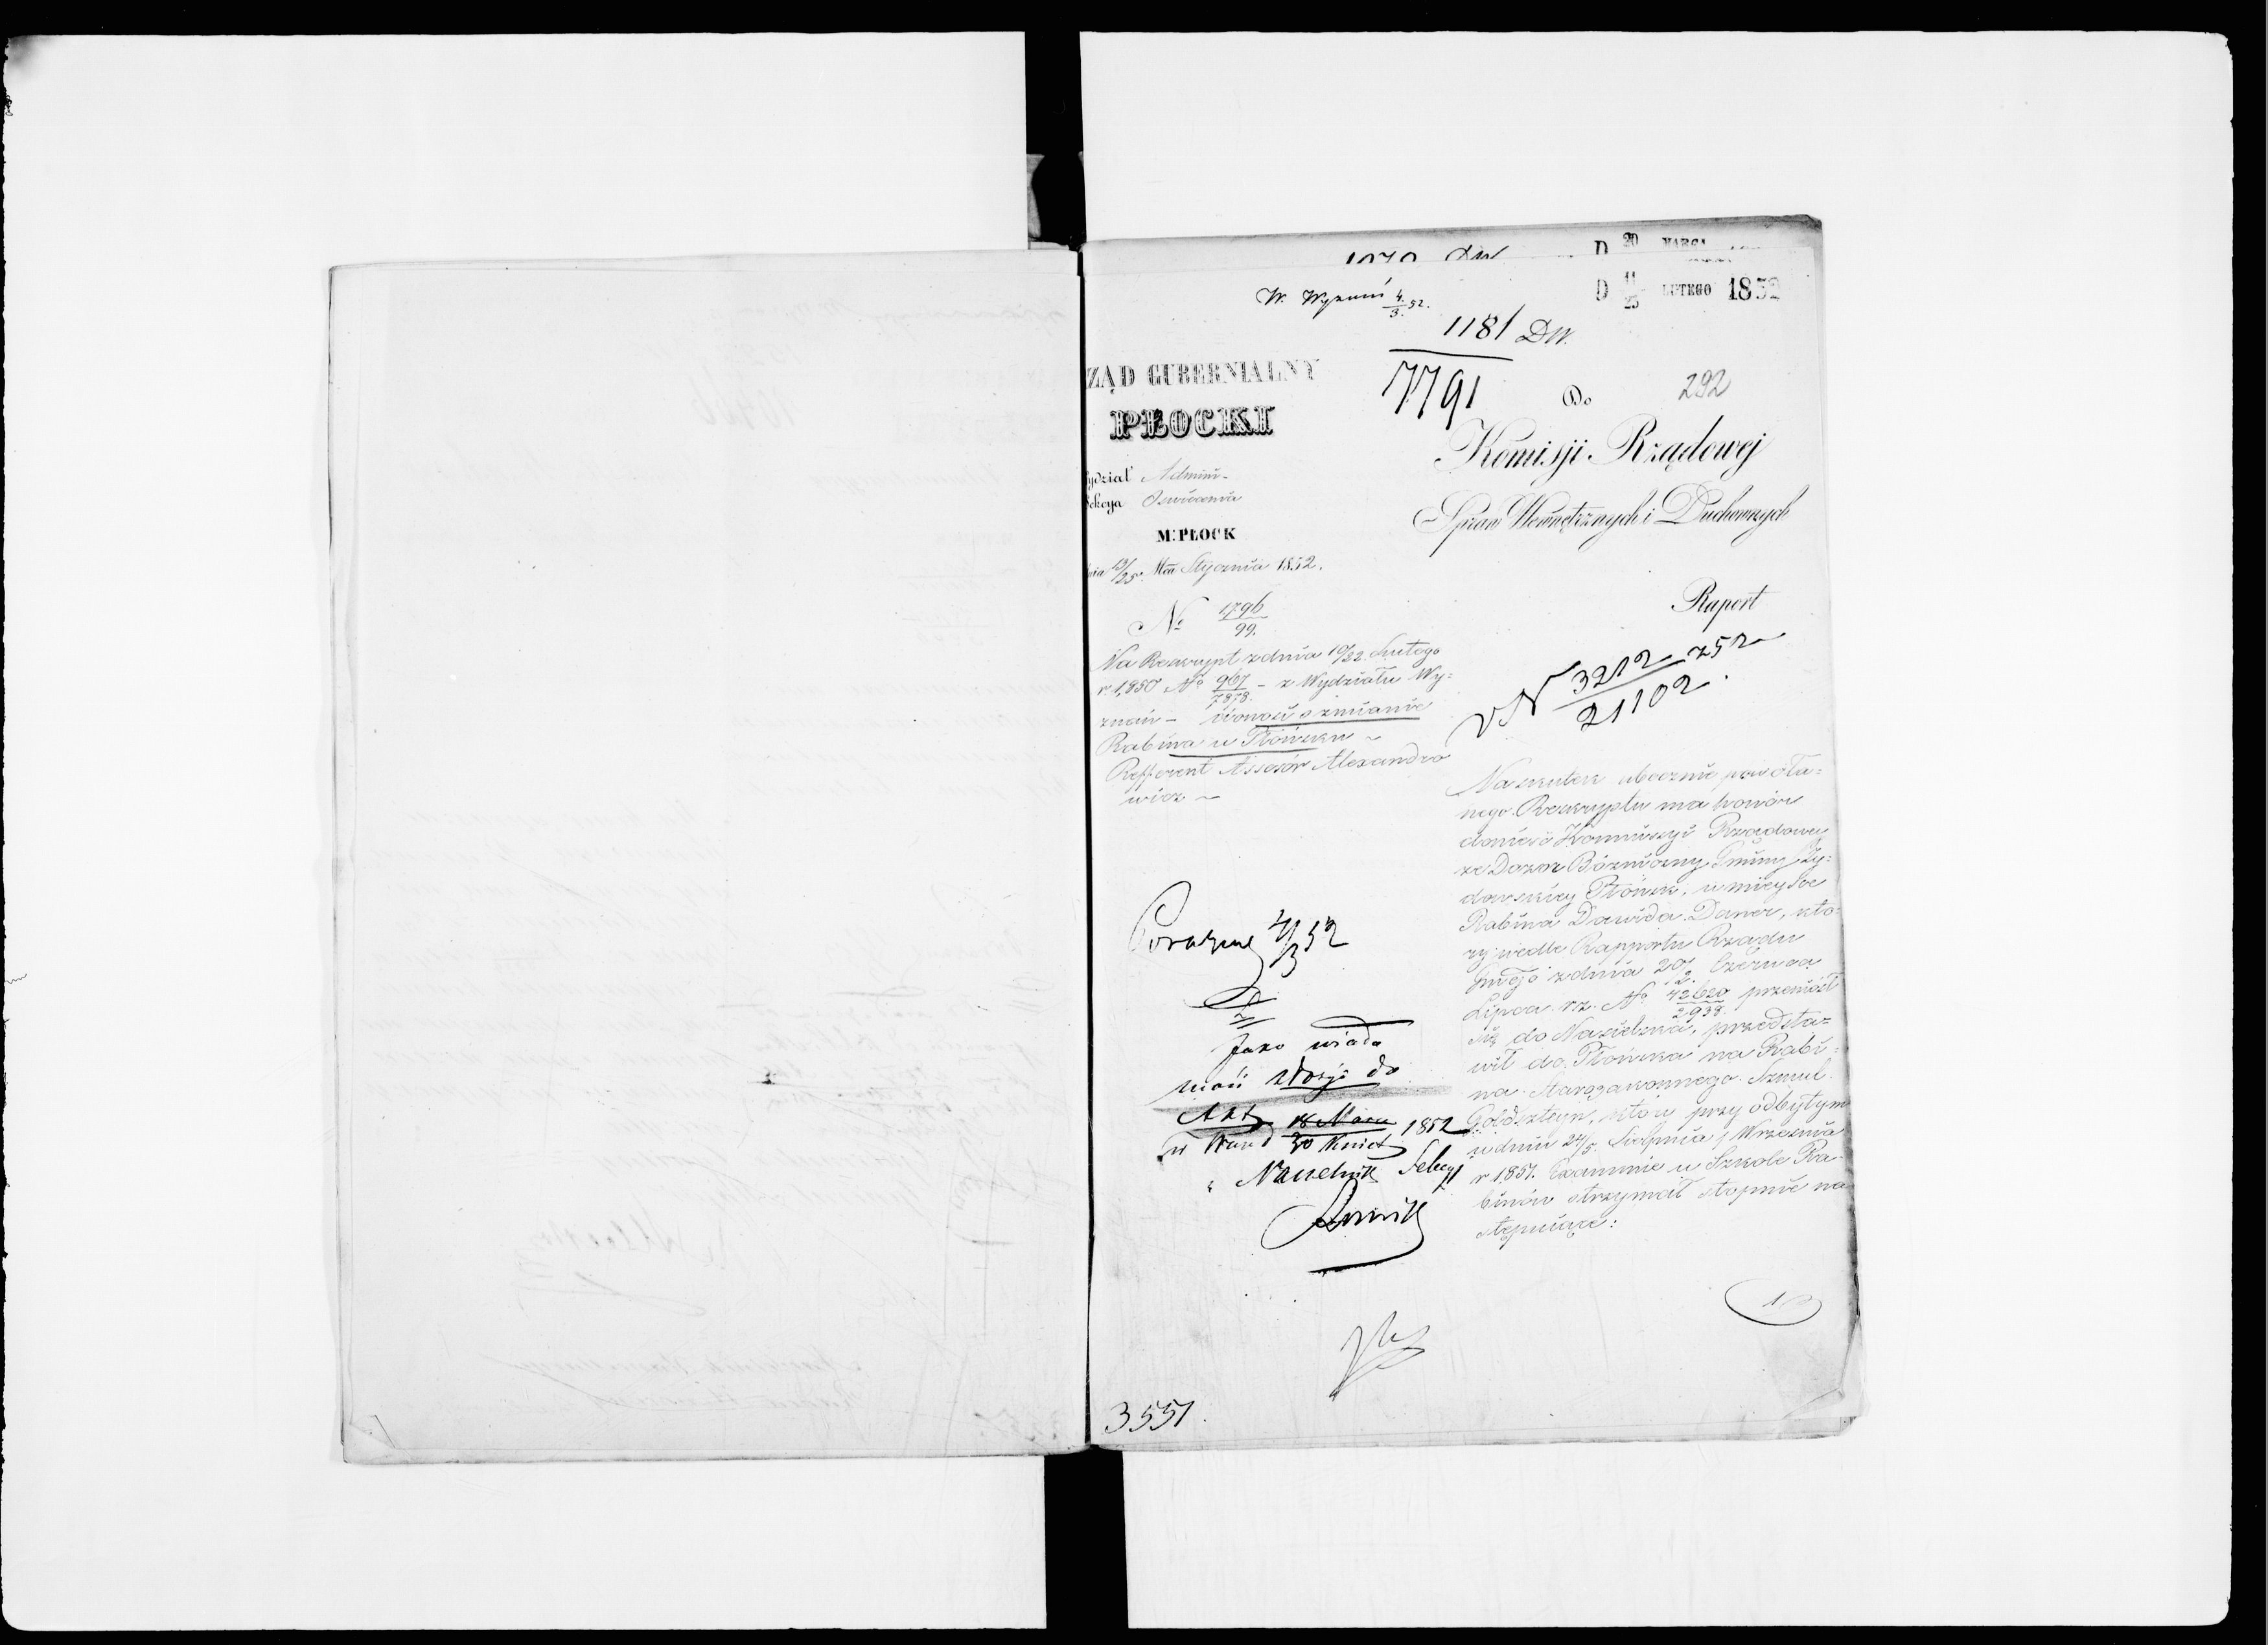 D 20 MARCA
D 11/23 LUTEGO 1852
W. Wyznań 4/3 52.
1181 DW.
7791
292
ZĄD GUBERNIALNY
PŁOCKI
ydział Admini-
ekcya Oswiecenia
M: PŁOCK
nia 13/25 Mca Stycznia 1852.
No 1796/99.
Na Reskrypt z dnia 10/22 Lutego
r. 1,850 No 967/7878 - z Wydziału Wy=
znań - donosi o zmianie
Rabina w Płońsku ~
Refferent Assesór Alexandro
wicz ~
Do
Komisji Rządowej
Spraw Wewnętrznych i Duchownych
Raport
v N 3212/21102 752
Na skutek ubocznie powoła=
nego Reskryptu ma honór
donieść Kommissyi Rządowey
że Dozor Bóżniczny Gminy Ży=
dowskiey Płońsk, w mieysce
Rabina Dawida Daner, któ=
ry wedle Rapportu Rządu
Gub̃go z dnia 20/2 Czerwca
Lipca r. z. No 42620/2938 przeniósł
się do Nasielska, przedsta=
wił do Płońska na Rabi=
na Starozakonnego Szmul
Goldszteyn, który przy odbytym
w dniu 24/5 Sierpnia/Września
r 1,851. Examinie w Szkole Ra=
binów otrzymał stopnie na
stępuiące:
4/3 52
Jako wiado
mość złożyć do
Akt 18 Marca 1852
w Warsz 30
Naczelnik Sekcyi
3551.